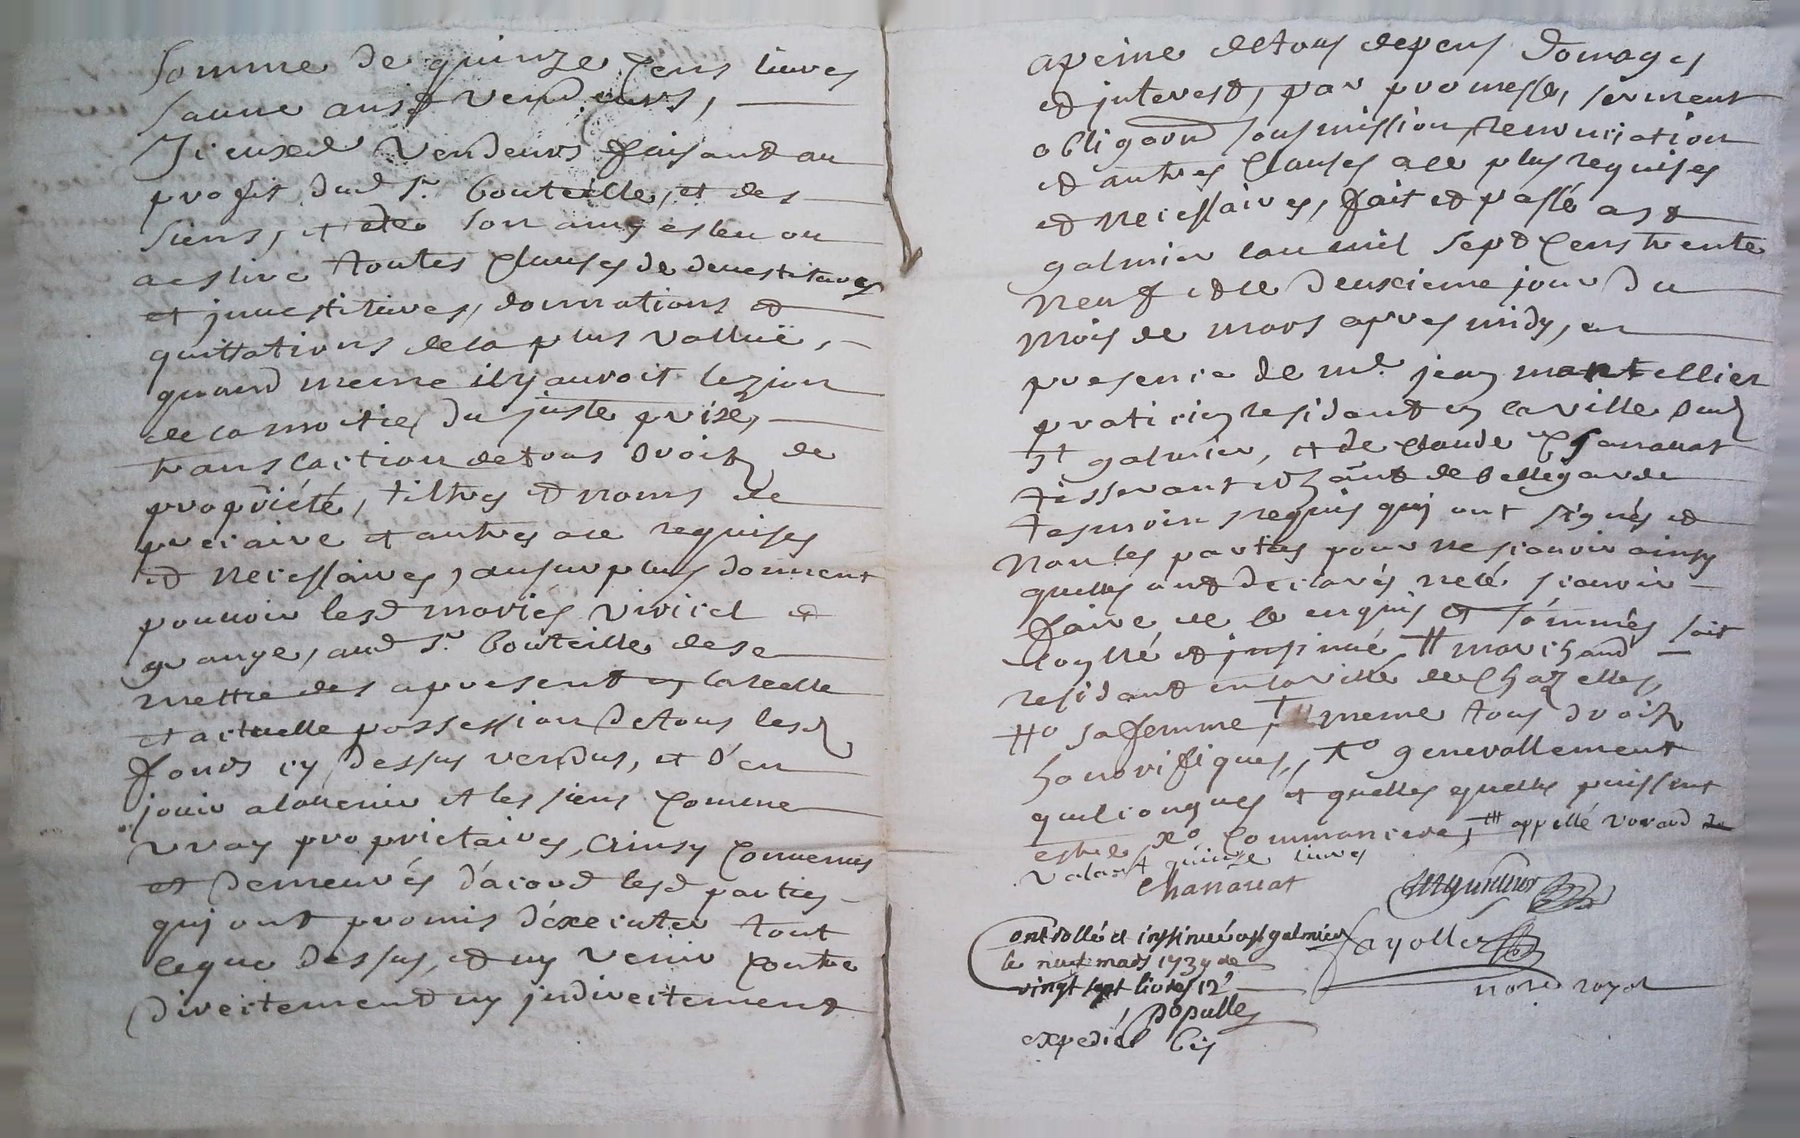 somme de quinze cens livres
sauue ausd vendeurs,
Iceuxd vendeurs faisant au
profit dud Sr. bouteille, et des
siens, et de son amy esleu ou
a eslire toutes clauses de devestitures
et jnvestitures, donnations et
quittations de la plus vallue,
quand meme il y auroit lezion
de la moitie du juste prise,
translaction de tous droits de
propriété, tiltres et noms de
precaire et autres a ce requises
et necessaires, au surplus donnent
pouuoir lesd maries viricel et
grange, aud Sr. bouteille de se
mettre des apresent en la reelle
et actuelle possession de tous lesd
fonds cy dessus vendus, et d'en
jouir alauenir et les siens comme
vray proprietaires, ainsy conuenus
et demeurés d'acord lesd parties
quj ont promis d'éxecuter tout
ce que dessus, et ny venir contre
directement ny jndirectement
a peine de tous depens domages
et jnterest, par promesse, serment
obligaon sousmission, renonciation
et autres clauses a ce plus requises
et necessaires, fait et passé a st
galmier lan mil sept cens trente
neuf et le deuxieme jour du
mois de mars apres midy, en
presence de me. jean montellier
praticien residant en la ville dud
st galmier, et de claude chanauat
tisserant de bellegarde
tesmoins requis quj ont signés et
non les parties pour ne scauoir ainsy
quelles ont declarés nele scauoir
faire de ce enquis et sommés soit
et jnsinué # marchand
residant en la ville de chazelles,
#o sa femme, meme tous droits
honorifiques, xo generallement
quelconques et quelles quelles puissent
estre xo commanciere, appellé
valant quinze liures
chanauat
fayolle
nore royal
Controllé et jnsinué a st galmier
le neuf mars 1739 de
vingt sept livres 12s
populle
expedié bis